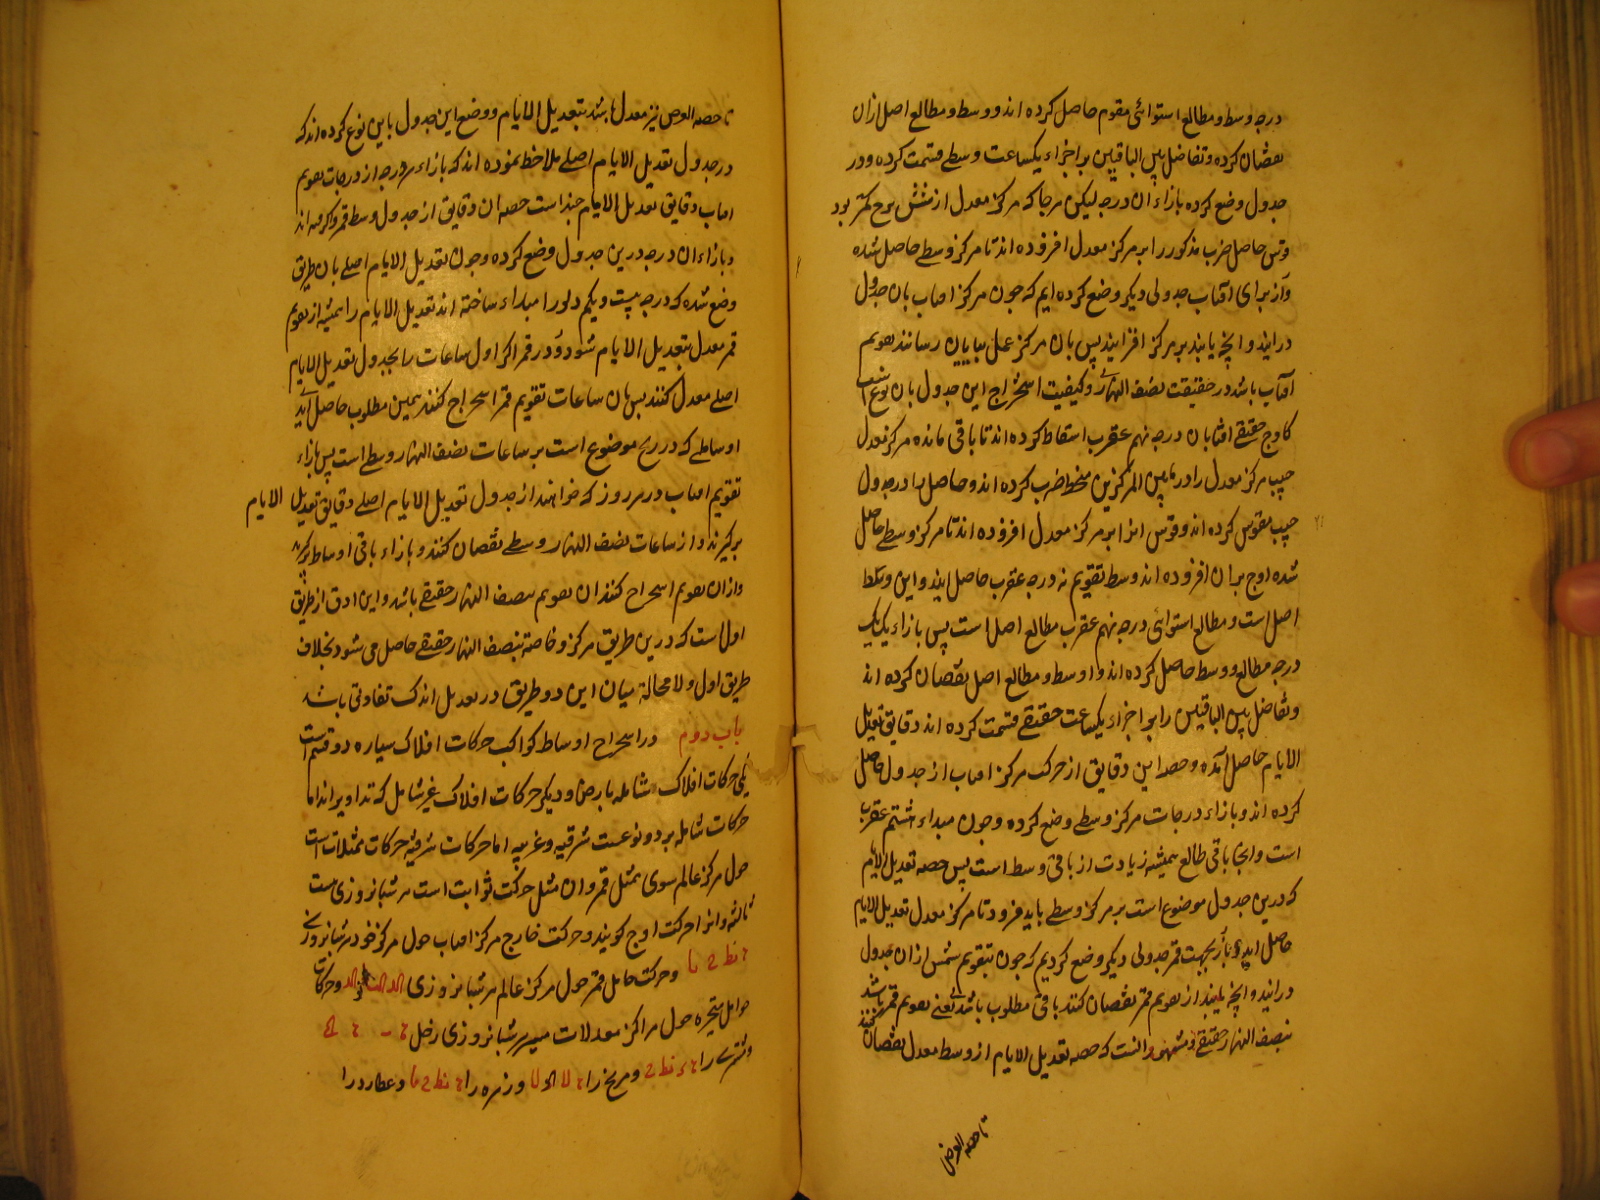 درجه وسط و مطالع استوائی مقوم حاصل کرده اند و وسط و مطالع اصل ازان
نقصان کرده و تفاضل بین الباقیین بر اجزاء یکساعت وسطی قسمت کرده و در
جدول وضع کرده بازاء ان درجه لیکن هرجا که مرکز معدل از شش برج کمتر بود
وقس حاصل ضرب مذکور را بر مرکز معدل افزوده اند تا مرکز وسطی حاصل شده
و از برای آفتاب جدولی دیکر وضع کرده ایم که چون مرکز افتاب بان جدول
درایند و انچه یابند بر مرکز افزایند پس بان مرکز عمل بپایان رسانند تقویم
آفتاب باشد در حقیقت نصف النهار و کیفیت استخراج این جدول بان نوع است
کاوج حقیقی افتاب ان درجه نهم عقرب اسقاط کرده اند تا باقی مانده مرکز معدل
جیب مرکز معدل را در مابین المرکزین منحط ضرب کرده اند و حاصل را در جدول
جیب مقوس کرده اند و قوس انرا بر مرکز معدل افزوده اند تا مرکز وسطی حاصل
شده اوج بران افزوده اند وسط تقویم نه درجه عقرب حاصل ایند و این وسط
اصل است و مطالع استوائی درجه نهم عقرب مطالع اصل است پس بازاء یک یک
درجه مطالع و وسط حاصل کرده اند و اوسط و مطالع اصل نقصان کرده اند
و تفاضل بین الباقیین را بر اجزاء یکساعت حقیقی قسمت کرده اند دقایق تعدیل
الایام حاصل آمده و حصه این دقایق از حرکت مرکز افتاب از جدول حاصل
کرده اند و بازاء درجات مرکز وسطی وضع کرده و چون مبداء هشتم عقرب
است و اینجا باقی طالع همیشه زیادت از باقی وسط است پس حصه تعدیل الایام
که درین جدول موضوع است بر مرکز وسطی باید فزود تا مرکز معدل تعدیل الایام
حاصل اید و باز بجهت قمر جدولی دیکر وضع کردیم که چون بتقویم شمس ازان جدول
درایند و انچه یابند از تقویم قمر نقصان کنند باقی مطلوب باشد یعنی تقویم قمر باشد
بنصف النهار حقیقی و مشهور انست که حصه تعدیل الایام از وسط معدل نقصان کنند
تا حصه الوض
تا حصه الوض نیز معدل باشد بتعدیل الایام و وضع این جدول باین نوع کرده اند که
در جدول تعدیل الایام اصلی ملاحظه نموده اند که بازاء هر درجه از درجات تقویم
افتاب دقایق تعدیل الایام چند است حصه ان دقایق از جدول وسط قمر و اکرفته اند
و بازاء ان درجه درین جدول وضع کرده و چون تعدیل الایام اصلی بان طریق
وضع شده که درجه بیست و یکم دلو را مبداء ساخته اند تعدیل الایام را همیشه از تقویم
قمر معدل بتعدیل الایام شود و در قمر اکر اول ساعات را بجدول تعدیل الایام
اصلی معدل کنند پس بان ساعات تقویم قمر استخراج کنند همین مطلوب حاصل آید
اوساطی که در زیج موضوع است بر ساعات نصف النهار وسطی است پس بازاء
تقویم افتاب در هر روز که خواهند از جدول تعدیل الایام اصلی دقایق تعدیل الایام
برکیرند و از ساعات نصف النهار وسطی نقصان کنند و بازاء باقی اوساط کیرند
و ازان تقویم استخراج کنند ان تقویم بنصف النهار حقیقی باشد و این ادق از طریق
اول است که درین طریق مرکز و خاصه بنصف النهار حقیقی حاصل می شود بخلاف
طریق اول و لا محالة میان این دو طریق در تعدیل اندک تفاوتی باشد
باب دوم در استخراج اوساط کواکب حرکات افلاک سیاره دو قسم است
یکی حرکات افلاک شامله بارض و دیکر حرکات افلاک غیر شامل که تداویر اند اما
حرکات شامله بر دو نوعست شرقیه و غربیه اما حرکات شرقیه حرکات ممثلات است
حول مرکز عالم سوی ممثل قمر و ان مثل حرکت ثوابت است هر شبانروزی ست
ثالثه و انرا حرکت اوج کویند و حرکت خارج مرکز افتاب حول مرکز خود هر شبانروزی
و حرکت حامل قمر حول مرکز عالم هر شبانروزی و حرکات
حوامل متحیره حول مراکز معدلات مسیر هر شبانروزی زحل
و مشتری را و مریخ را و زهره را و عطارد را